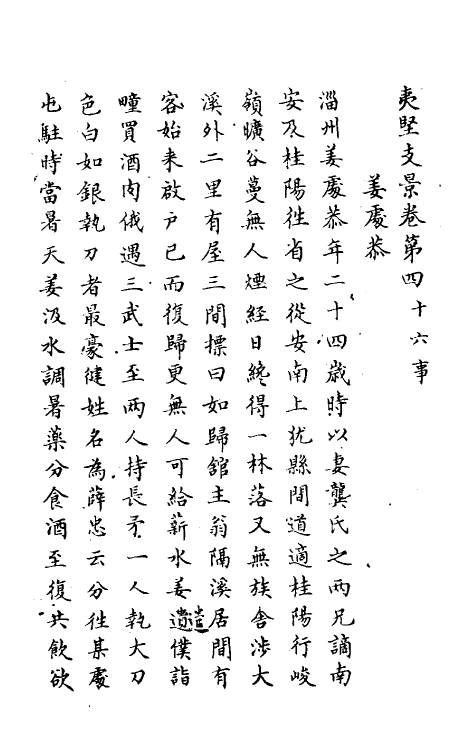 夷堅支景卷第四十六事
姜處恭
淄州姜處恭年二十四歲時以妻龔氏之兩兄謫南
安及桂陽徃省之從安南上犹縣間道適桂陽行峻
嶺曠谷蔓無人煙經日纔得一林落又無族舍涉大
溪外二里有屋三間摽曰如歸舘主翁隔溪居間有
客始来啟戸已而復歸更無人可給薪水姜遣僕詣
疃買酒肉俄遇三武士至两人持長矛一人執大刀
色白如銀執刀者最豪健姓名為薛忠云分徃某處
屯駐時當暑天姜汲水調暑藥分食酒至復共飲欲